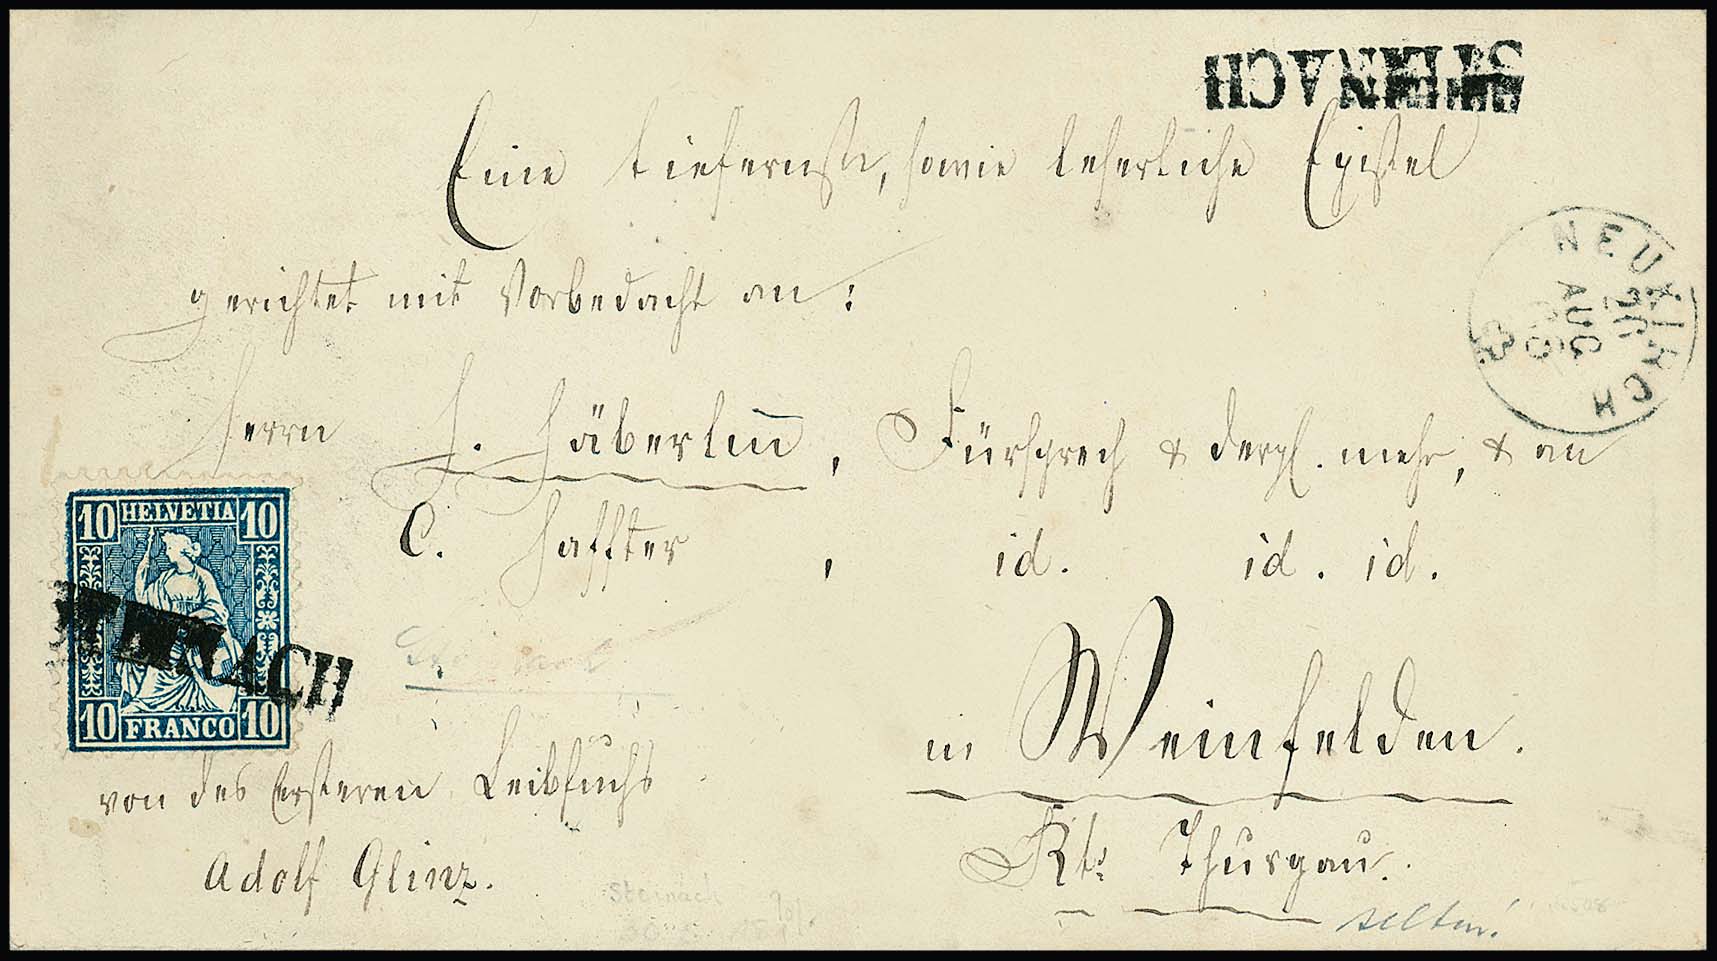 STEINACH
Eine tiefernste, sowie leserliche Epistel
gerichtet mit Vorbedacht an:
NEUKIRCH
AUG
Herrn H. Häberlin, Fürsprech & dergl. mehr, & an
C. Haffter, id. id. id.
10 HELVETIA 10
STEINACH
10 FRANCO 10
in Weinfelden.
Kts Thurgau.
von des Ersteren Leibfuchs
Adolf Glinz.
Steinach
selten!